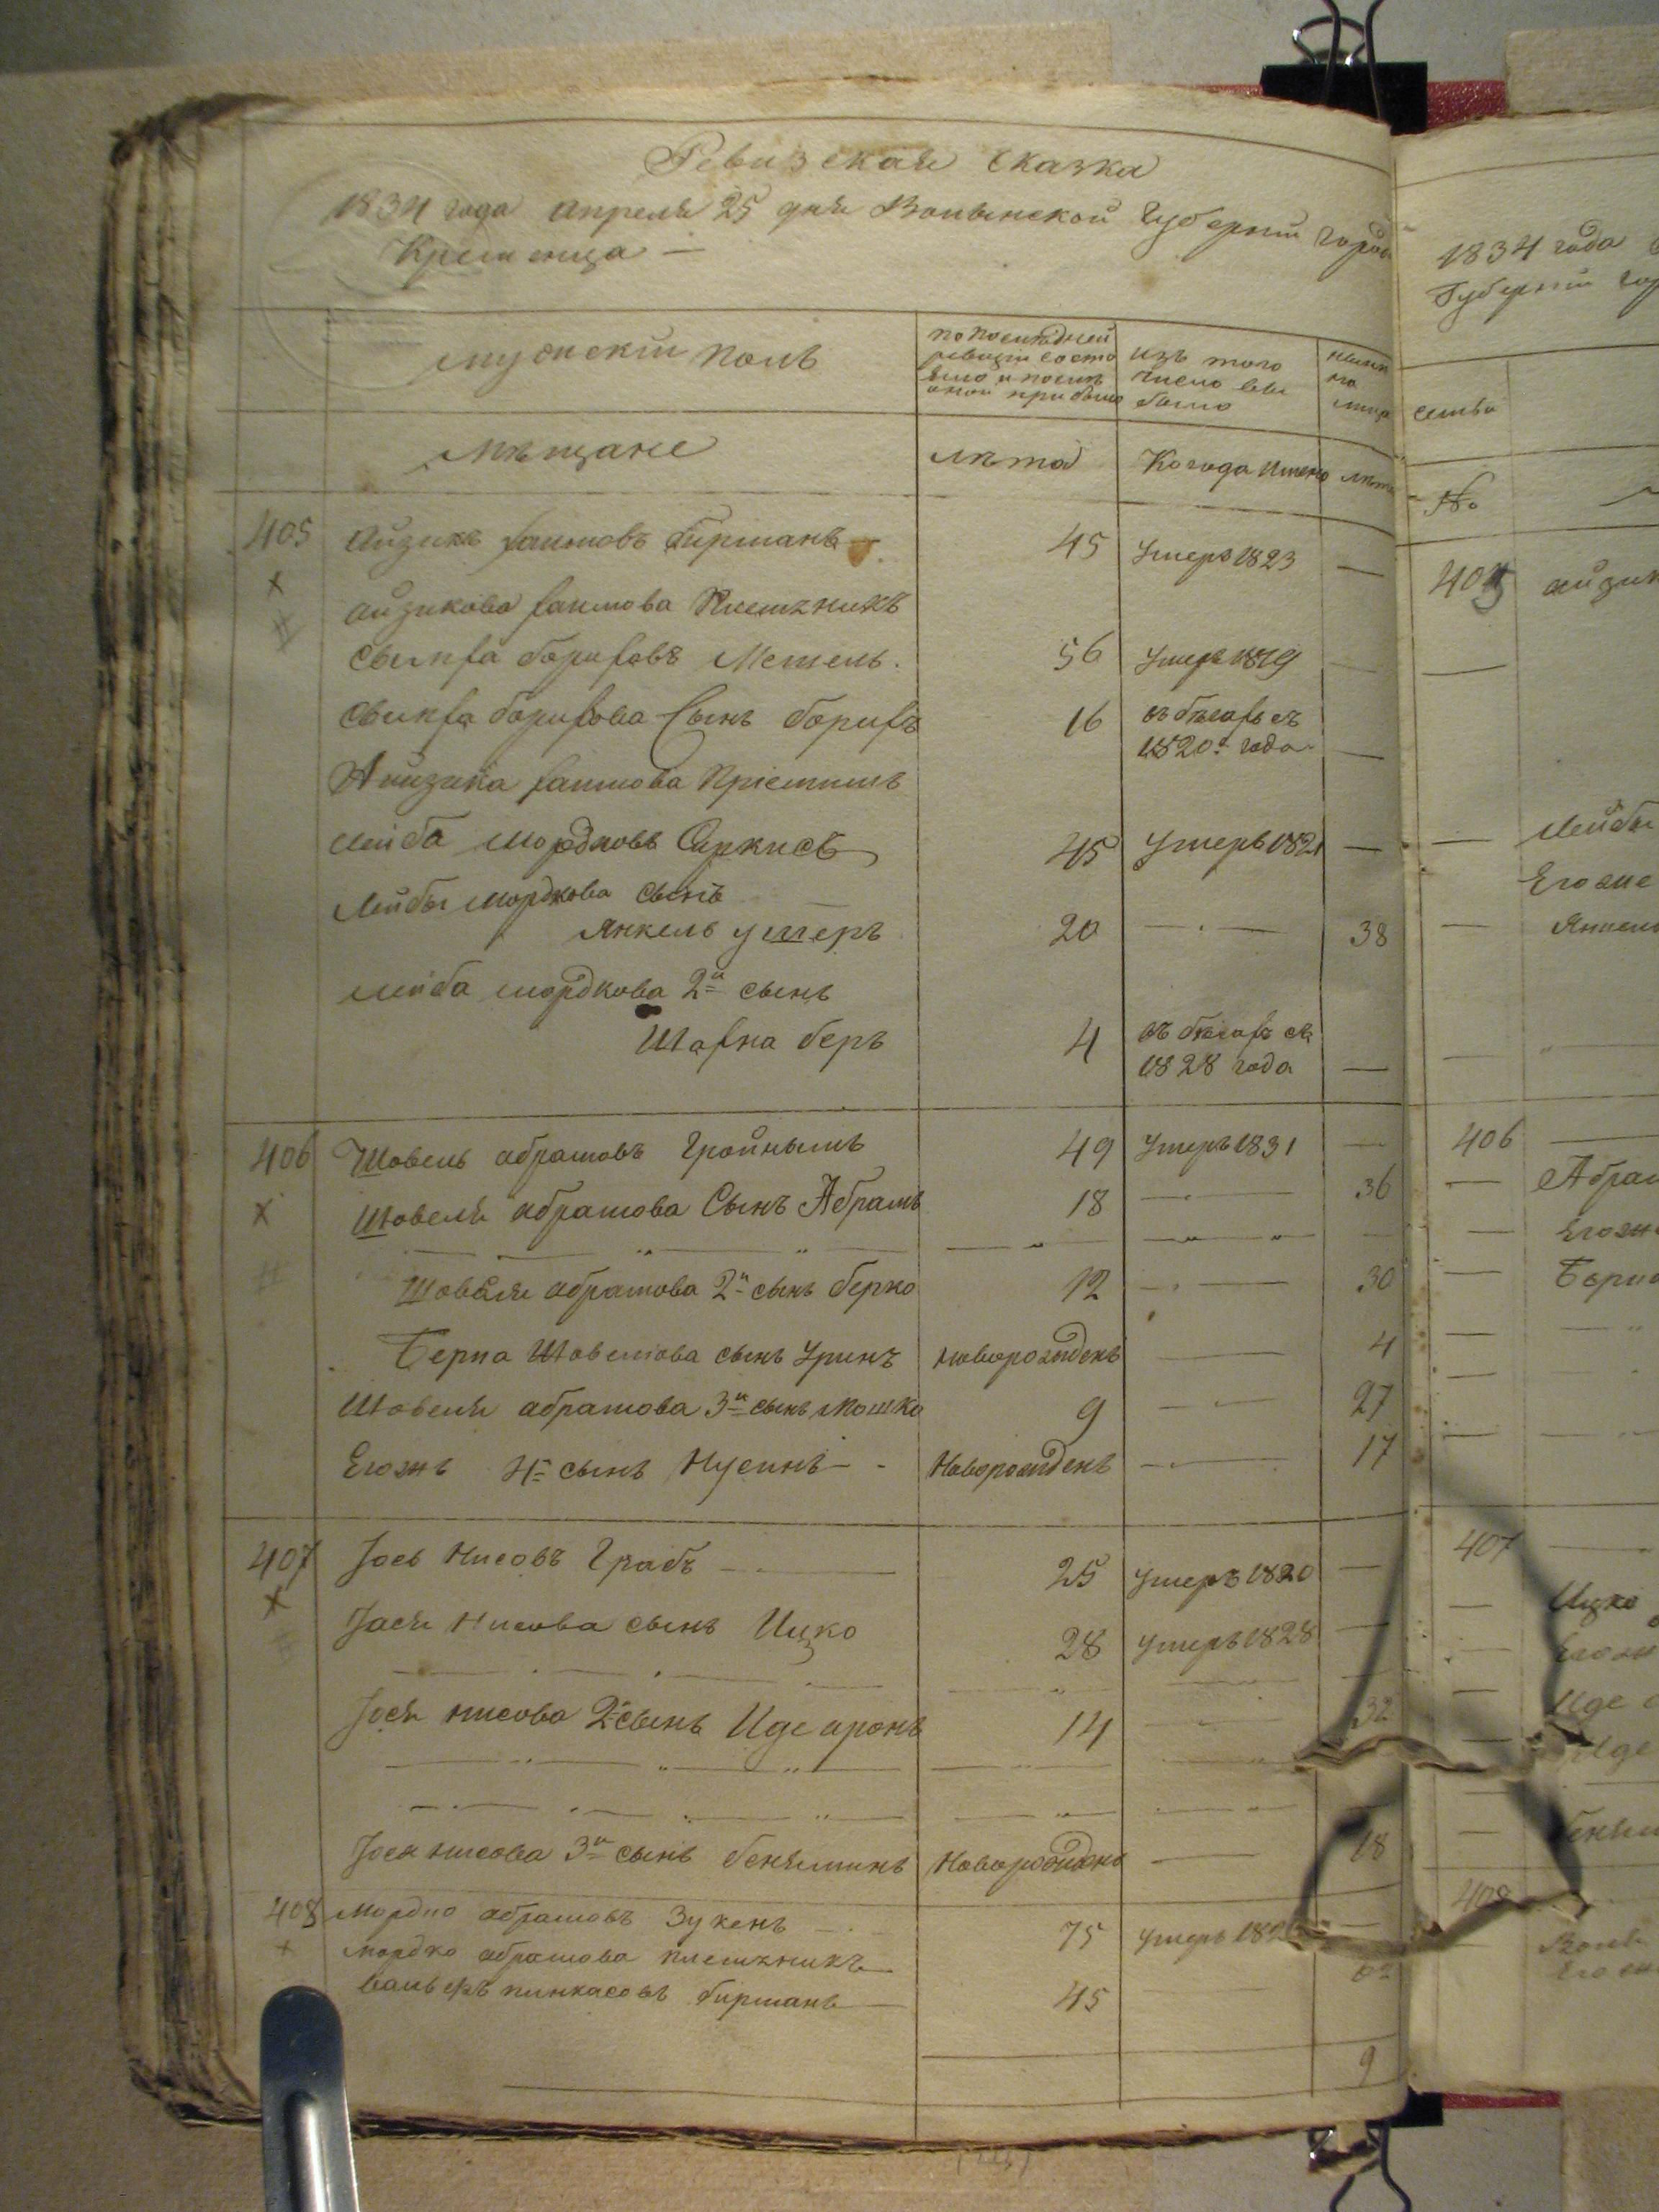 Ревизская Сказка
1834 года Апреля 25 дня Волынской Губернiи Города
Кременца —
Мужскiй полъ
по последней ревизiи состояло и после оной прибыло
изъ того число выбыло
мѣщане
лѣта
Когда имено
лѣта
405 Айзикъ Хаимовъ бирманъ 45 Умеръ 1823 —
Айзикова Хаимова племжникъ
Свинха боруховъ Метель. 56 Умеръ 1819 —
Свинха борухова Сынъ борухъ 16 въ бѣгахъ съ
1820го года —
Айзика Хаимова Прiемишъ
Лейба Мордковъ Сиркисъ 45 Умеръ 1821 —
Лейбы Мордкова сынъ
Янкель ушеръ 20 — 38
Лейба Мордкова 2й сынъ
Шахна беръ 4 въ бѣгахъ съ
1828 года —
406 Шовель абрамовъ Гройнымъ 49 Умеръ 1831 —
Шовеля абрамова Сынъ Абрамъ 18 — 36
Шовеля абрамова 2й сынъ берко 12 — 30
Берка Шовелiова сынъ Уринъ новорожденъ — 4
Шовеля абрамова 3й сынъ мошко 9 — 27
Егожъ 4й сынъ Нусинъ — Новорожденъ — 17
407 Iось Нисовъ Грабъ 25 Умеръ 1820 —
Iося Нисова сынъ Ицко 28 умеръ 1828 —
Iося нисова 2й сынъ Иде аронъ 14 — 32
Iося нисова 3й сынъ беняминъ Новорождено — 18
408 Мордко абрамовъ Зукенъ — 75 Умеръ —
Мордко абрамова племжникъ
Вольфъ пинкасовъ бирманъ 45 —
9
1834 года
Губернiи
семьи
№
405 Айзик
— Лейбы
Егоже
—
406 —
— Абрам
—
407 —
— Ицко
— Иде
408